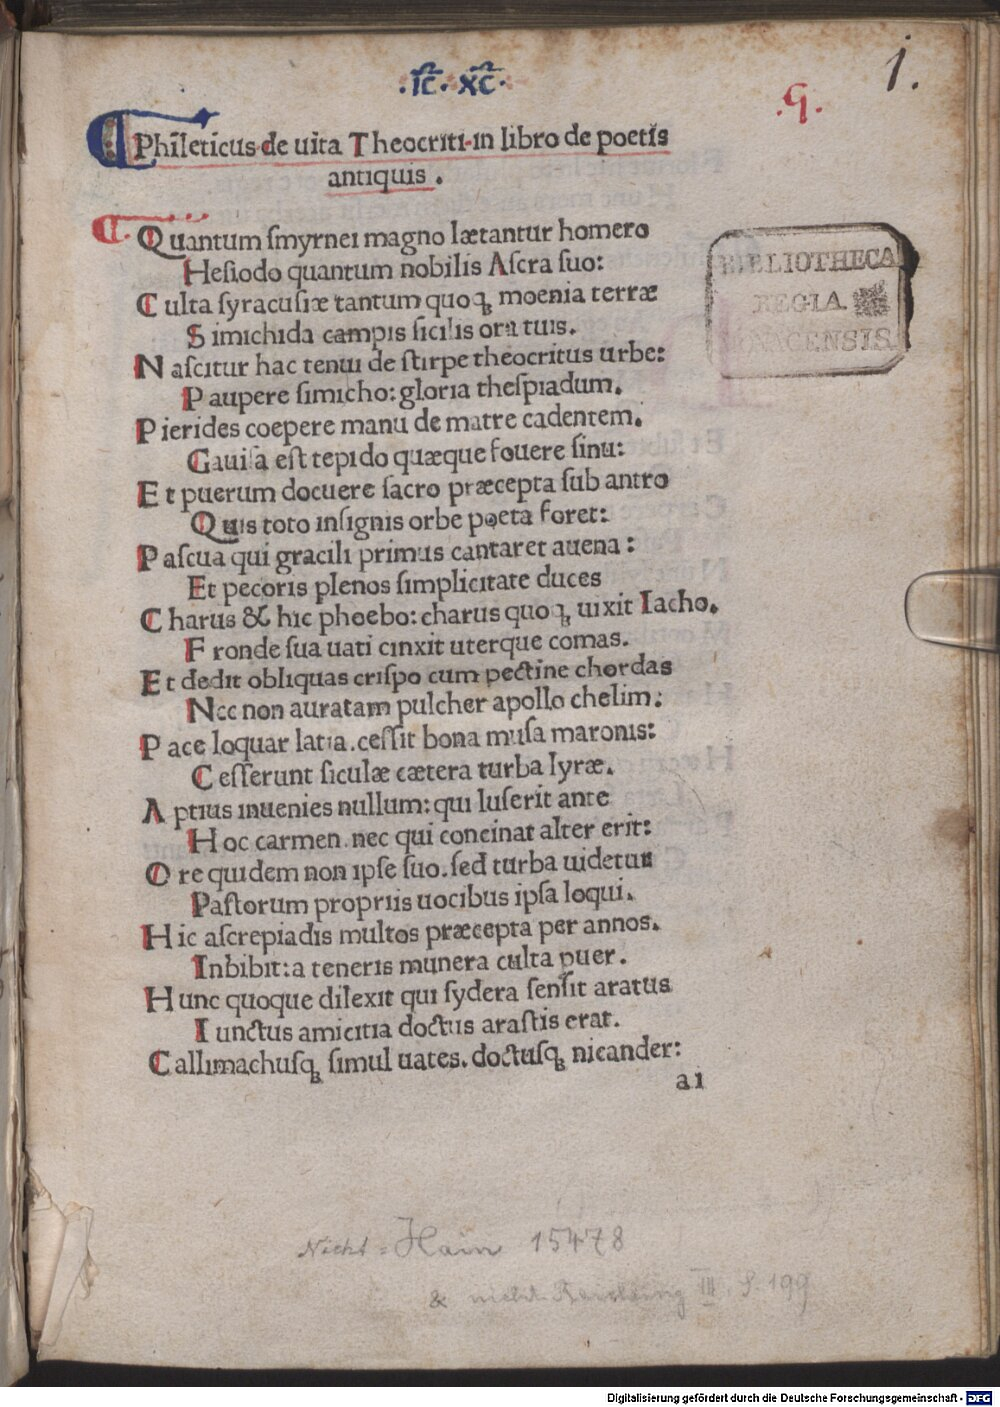 .ic̄. xc̄.
.q. 1.
Phīleticus de uita Theocriti in libro de poetis
antiquis .
Quantum ſmyrnei magno lætantur homero
Heſiodo quantum nobilis Aſcra ſuo:
BIBLIOTHECA
REGIA
MONACENSIS.
C ulta ſyracuſiæ tantum quoqꝫ moenia terræ
S imichida campis ſicilis ora tuis.
N aſcitur hac tenui de ſtirpe theocritus urbe:
P aupere ſimicho: gloria theſpiadum.
P ierides coepere manu de matre cadentem.
Gauiſa eſt tepido quæque fouere ſinu:
E t puerum docuere ſacro præcepta ſub antro
Quis toto inſignis orbe poeta foret:
P aſcua qui gracili primus cantaret auena :
Et pecoris plenos ſimplicitate duces
C harus & hic phoebo: charus quoqꝫ uixit Iacho.
F ronde ſua uati cinxit uterque comas.
E t dedit obliquas criſpo cum pectine chordas
Nec non auratam pulcher apollo chelim:
P ace loquar latia .ceſſit bona muſa maronis:
C eſſerunt ſiculæ cætera turba lyræ.
A ptius inuenies nullum: qui luſerit ante
H oc carmen. nec qui concinat alter erit:
O re quidem non ipſe ſuo. ſed turba uidetur
Paſtorum propriis uocibus ipſa loqui.
H ic aſcrepiadis multos præcepta per annos.
Inbibit: a teneris munera culta puer .
H unc quoque dilexit qui ſydera ſenſit aratus
I unctus amicitia doctus araſtis erat.
C allimachuſqꝫ ſimul uates. doctuſqꝫ nicander:
a1
Nicht = Hain 15478
& nicht Reichling III, S. 199
Digitalisierung gefördert durch die Deutsche Forschungsgemeinschaft - DFG